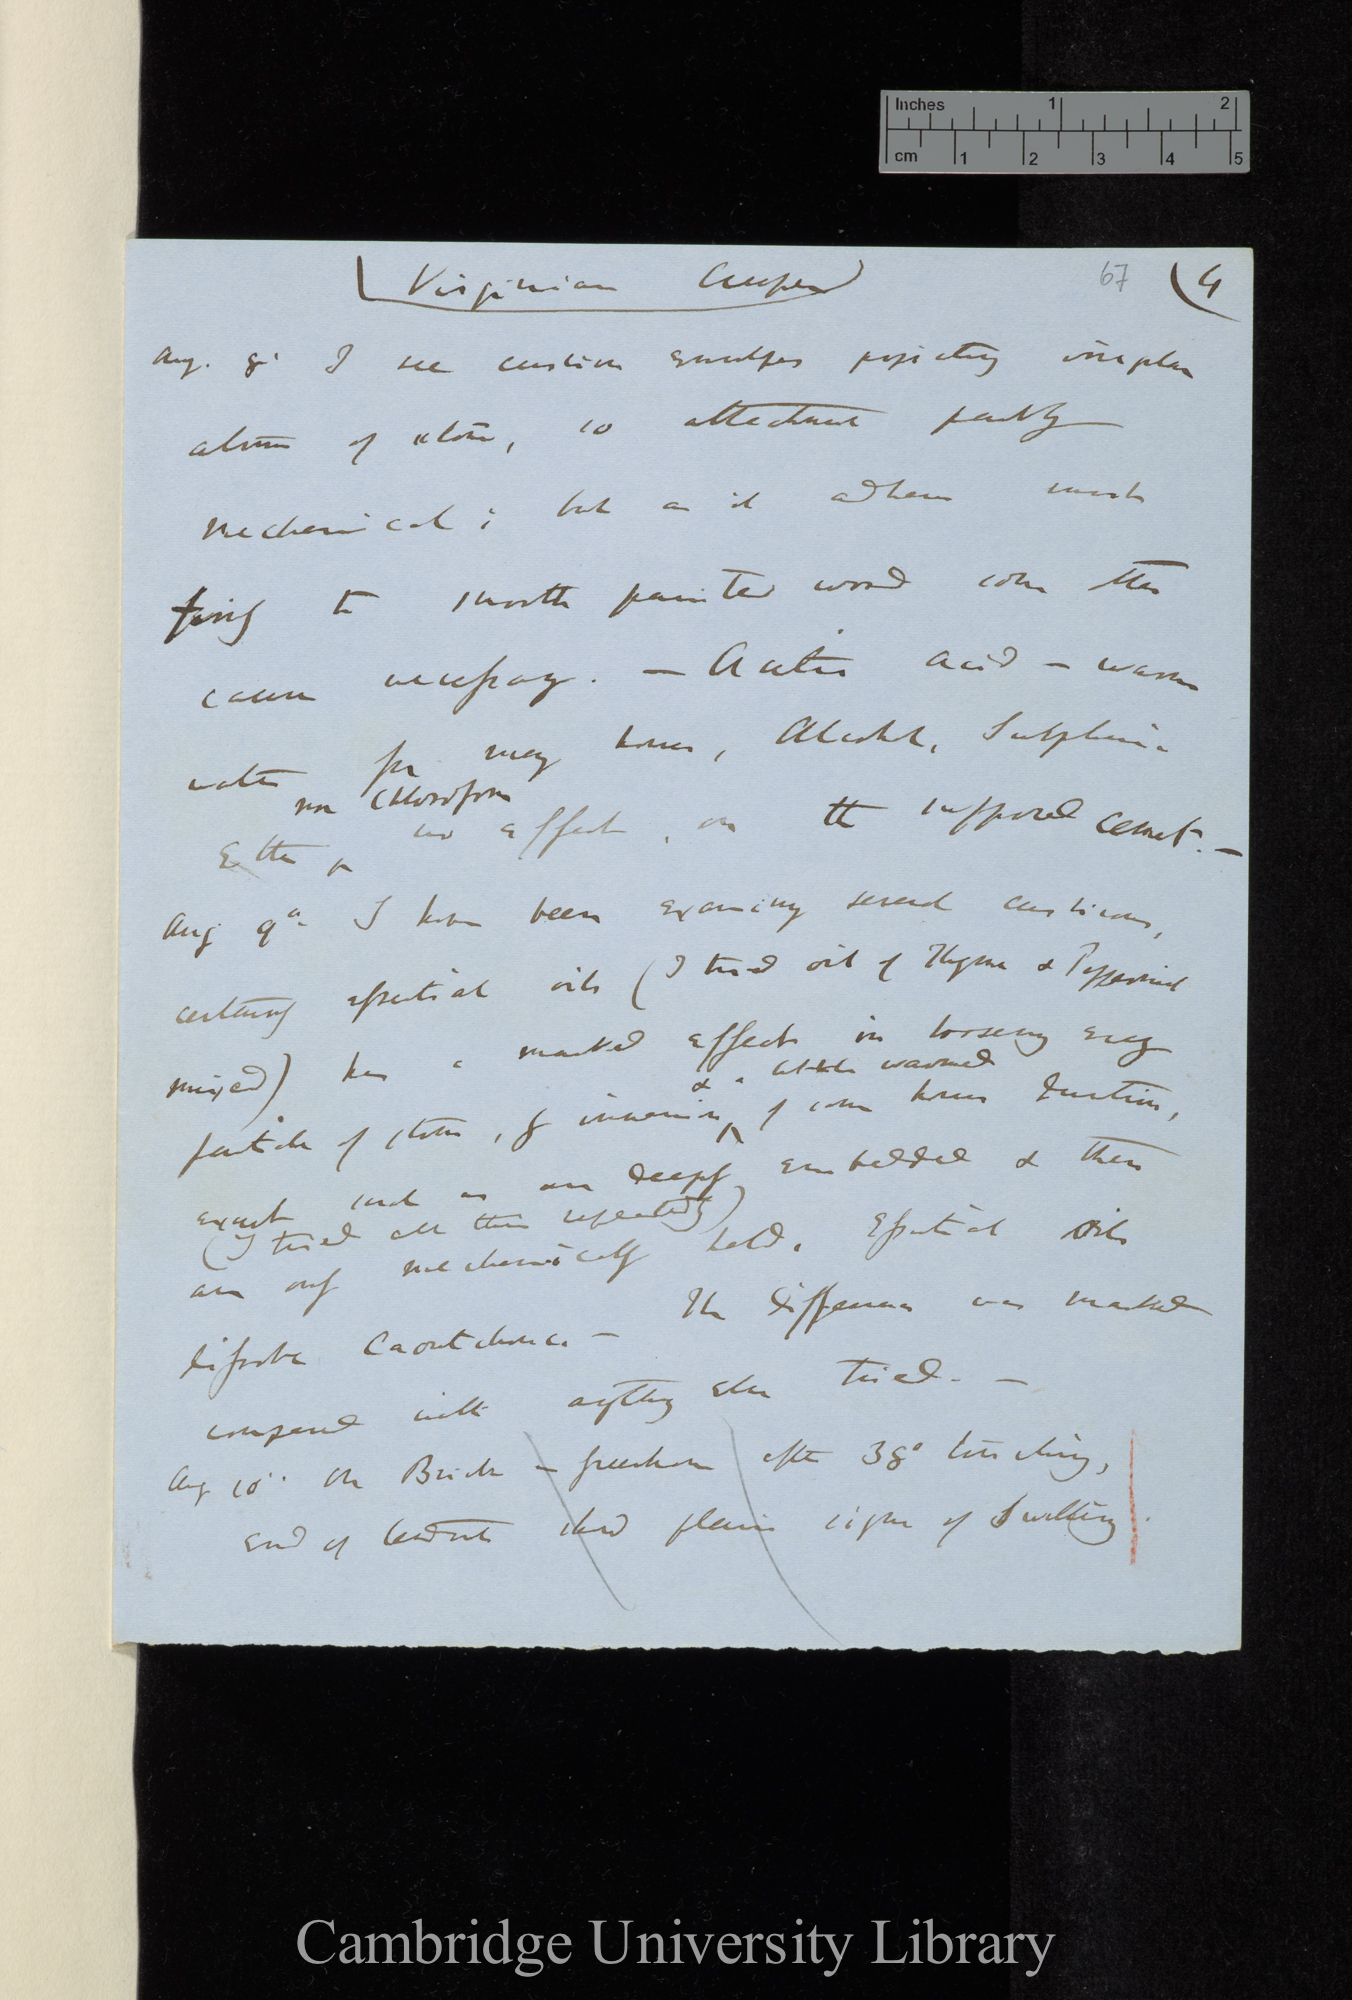 Inches 1 2
cm 1 2 3 4 5
Virginian Creeper 67 (4
Aug. 8' I see cushion envelopes projecting
atoms of stone, so attachment partly
mechanical; but as it adheres most
firmly to smooth painted wood some other
cause necessary. — Acetic Acid — warm
water for many hours, Alcohol, Sulphuric
nor Chloroform
Ether no effect, on the supposed cement. —
Aug 9th I have been examining several cushions,
certainly essential oils (I tried oil of Thyme & Peppermint
mixed) has a marked effect in loosening every
& a little warmed
particle of stone, if immersion of some hours duration,
except such as are deeply embedded & then
(I tried all this repeatedly)
are only mechanically held. Essential oils
dissolve Caoutchouc. — The difference was marked
compared with anything else tried. —
Aug 10'' On Brick — greenhouse after 38° touching,
end of tendrils shew plain signs of swelling.
Cambridge University Library